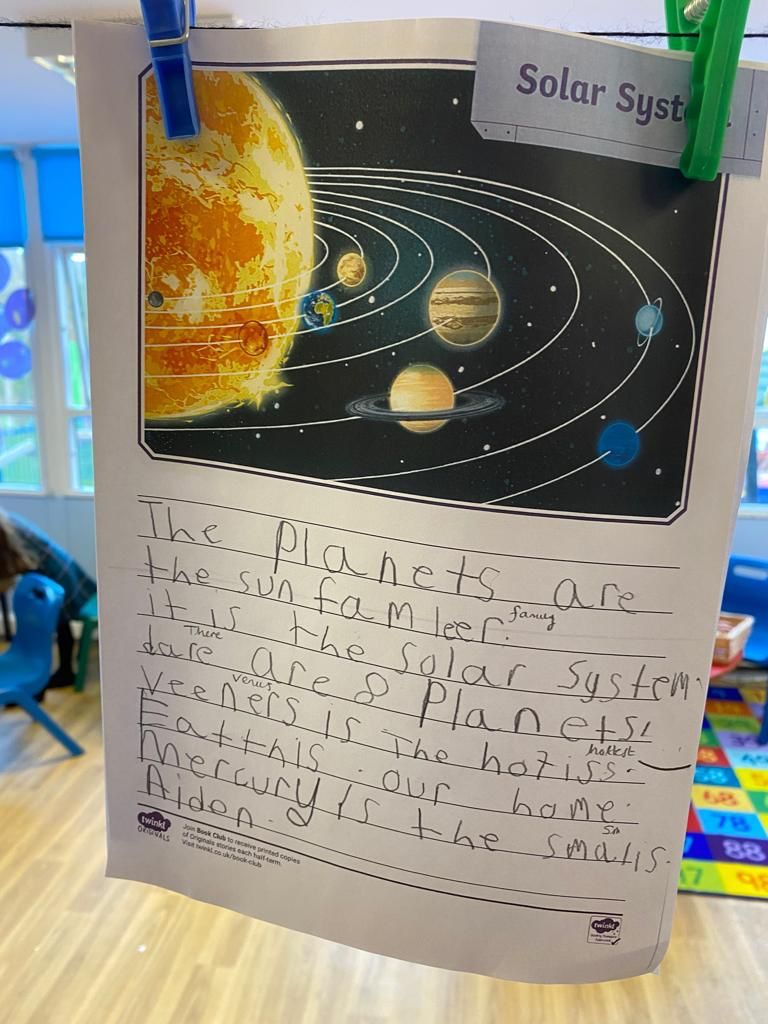 Solar Syst
The planets are
the sun famleer. family
it is the solar system.
There
dare are 8 Planets!
venus
Veeners is The hotiss. hottest
Eatthis. our home.
Mercury is the smalis. sm
Aidan.
twinkl
ORIGINALS
Join Book Club to receive printed copies
of Originals stories each half-term.
Visit twinkl.co.uk/book-club
twinkl
78
88
98
68